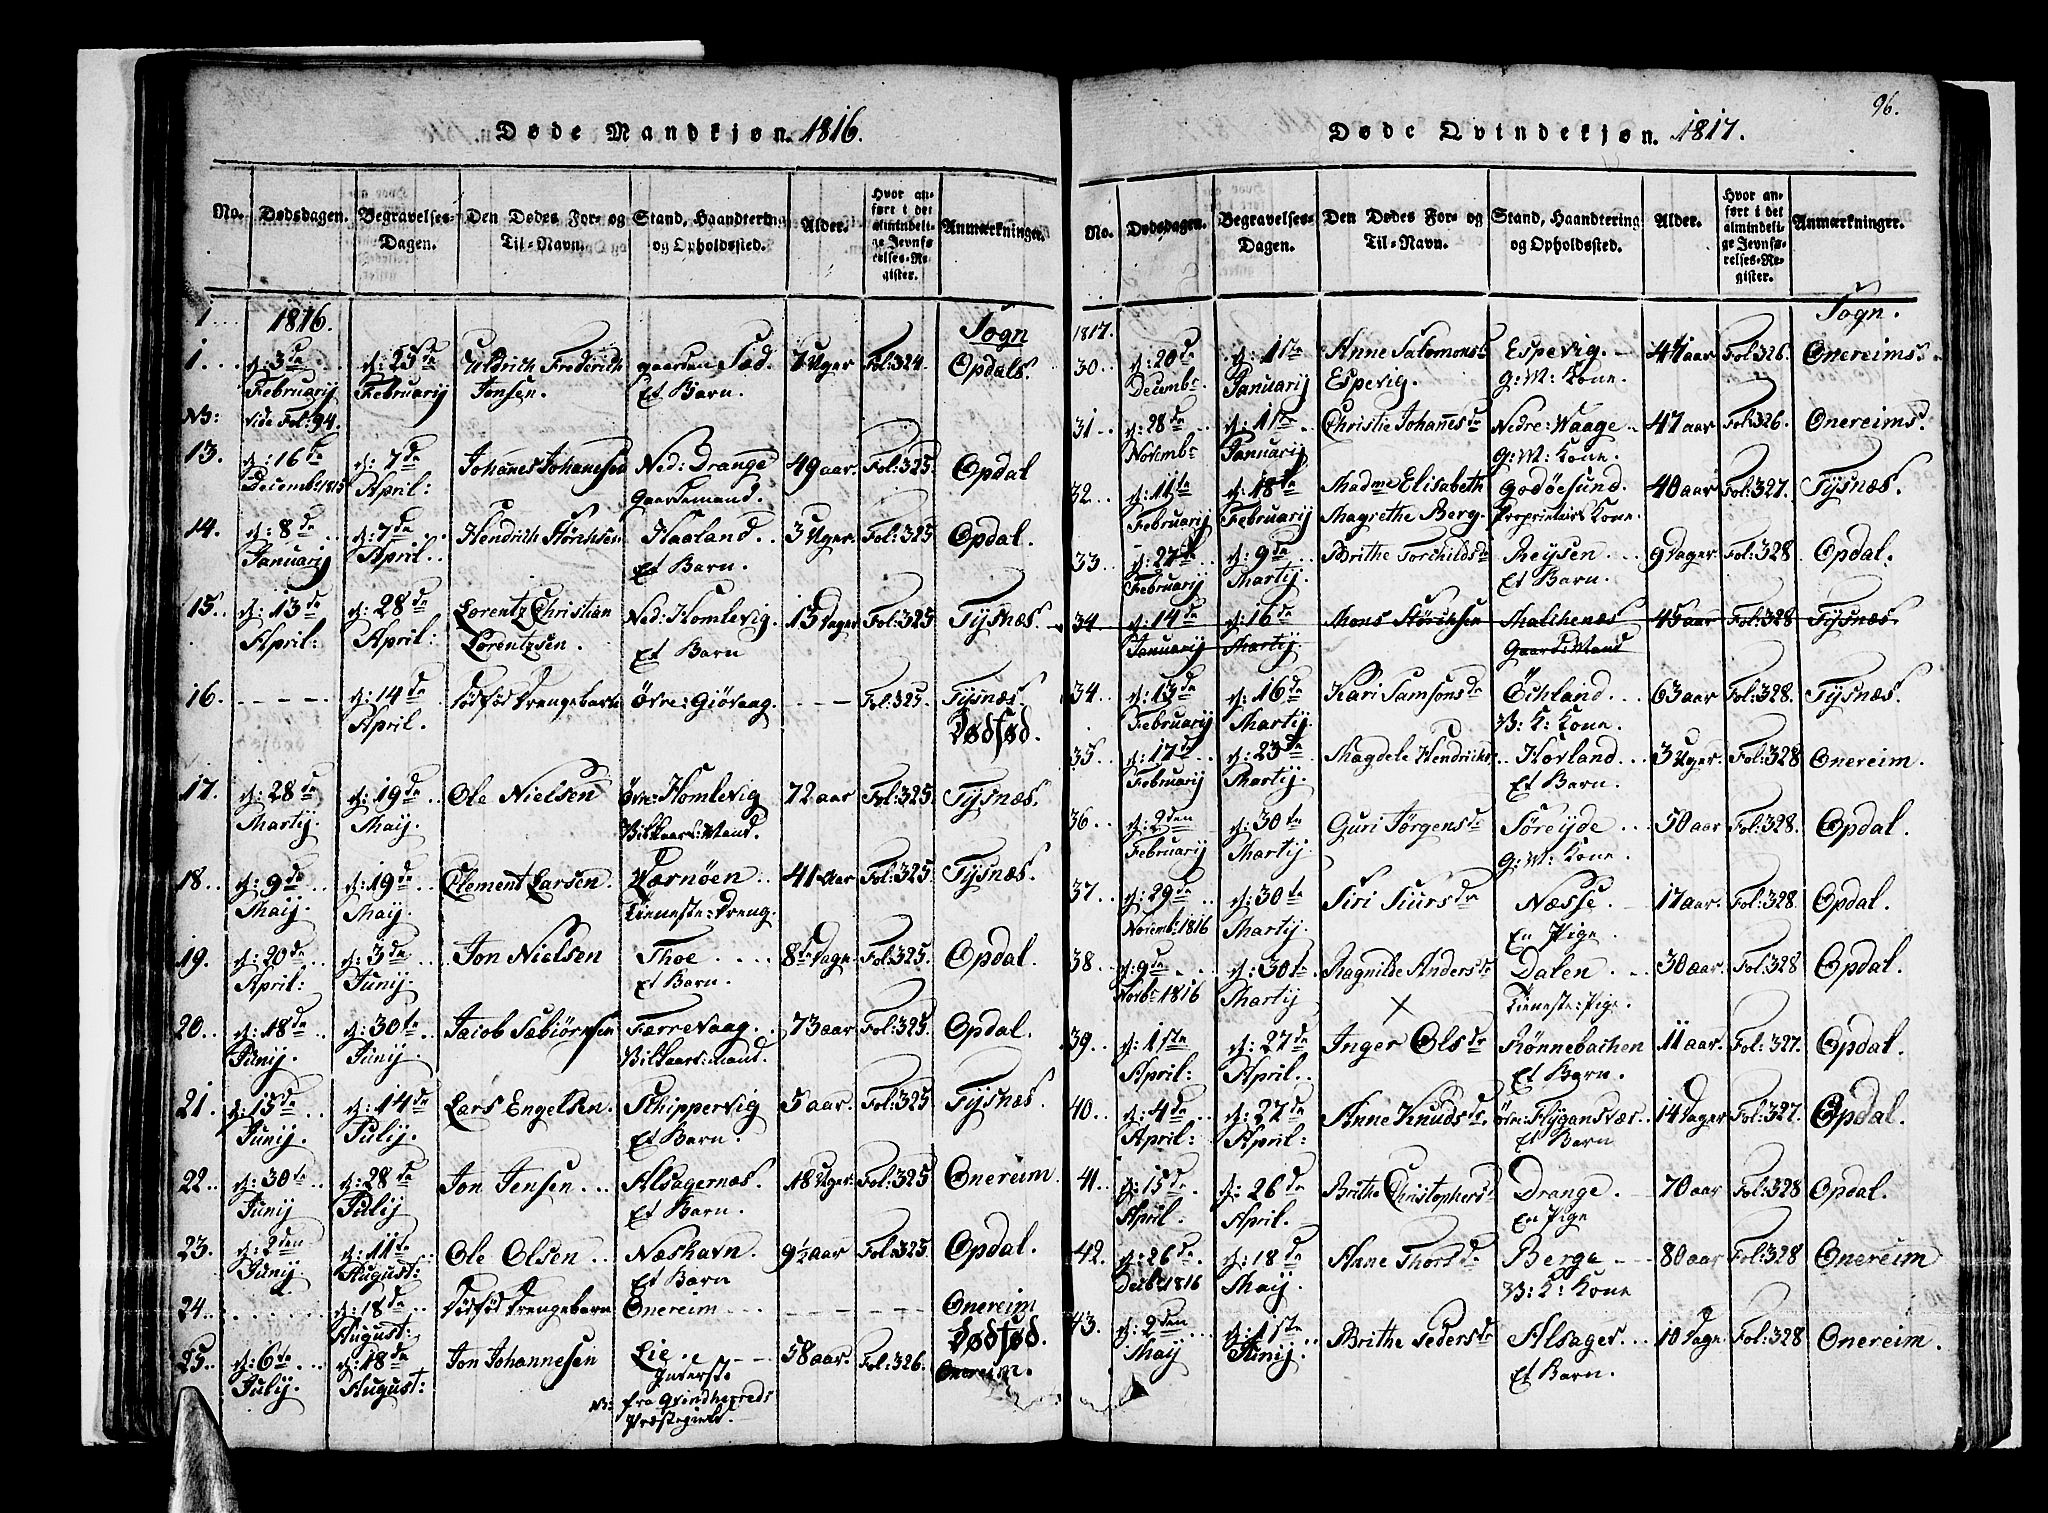 Døde Mandkjøn. 1816.
No. Dødsdagen. Begravelses-Dagen. Den Dødes For- og Til-Navn. Stand, Haandtering og Opholdssted. Alder. Hvor anført i det almindelige Jevnførelses-Register. Anmærkninger.
1.... 1816. Sogn
1... d: 3de Februarij d: 25de Februarij Uldrich Frederich Jensen. gaarden Sæd. Et Barn. 7 Uger Fol: 324. Opdals.
NB: vide Fol: 94.
13. d: 16te Decemb: 1815 d: 7de April: Johanes Johanesen Ned: Drange Gaardemand. 49 aar. Fol: 325. Opdal
14. d: 8de Januarij d: 7de April. Hendrich Størchsen Haaland Et Barn. 3 Uger. Fol: 325 Opdal.
15.. d: 13de April: d: 28de April: Lorentz Christian Lorentzsen. Ned: Homlevig. Et Barn 13 Dager Fol: 325 Tysnæs.
16. - - - d: 14de April. Dødfød Drengebarn Övre: Giövaag. - - - Fol: 325. Tysnæs. Dødfød.
17. d: 28de Martij d: 19de Maij. Ole Nielsen övre: Homlevig Vilkaars: Mand. 72 aar Fol: 325. Tysnæs.
18.. d: 9de Maij d: 19de Maij. Clement Larsen. Værnöen Tieneste: Dreng. 41 Aar Fol: 325. Tysnæs.
19. d: 20de April: d: 3de Junij. Jon Nielsen Thoe Et Barn. 8te Dage. Fol: 325. Opdal.
20.. d: 18de Junij. d: 30te Junij. Jacob Sæbiörnsen Færrevaag Vilkaars: mand. 73 aar Fol: 325. Opdal.
21. d: 15de Junij. d: 14de Julij. Lars Engelsen. Schippervig Et Barn. 5 aar. Fol: 325 Tysnæs.
22.. d: 30te Junij d: 28de Julij Jon Jensen Alsagernæs. Et Barn. 18 Uger. Fol: 325 Onereim.
23. d: 2den Junij d: 11te August: Ole Olsen Næshavn. Et Barn 9½ aar Fol: 325. Opdal.
24.. . . . . d: 18de August: Dödfød Drengebarn Onereim - - - Onereim Dødfød.
25. d: 6te Julij. d: 18de August: Jon Johannesen Lie. Inderste NB: fra Qvindherreds Præstegield. 58 aar. Fol: 326. Onereim.
96.
Døde Qvindekjøn. 1817.
No. Dødsdagen. Begravelses-Dagen. Den Dødes For- og Til-Navn. Stand, Haandtering og Opholdssted. Alder. Hvor anført i det almindelige Jevnførelses-Register. Anmærkninger.
1817. Sogn.
30.. d: 20de Decemb: d: 1ste Januarij Anne Salomonsd: Espevig. Espevig. G: M: Kone. 44 aar Fol: 326. Onereims.
31.. d: 28de Novemb: d: 1ste Januarij Christie Johanesd: Nedre: Waage G: M: Kone. 47 aar Fol: 326. Onereims.
32... d: 11te Februarij d: 18te Februarij Madme Elisabeth Magrethe Berg. Godöesund. Proprietairs Kone. 40 aar Fol: 327. Tysnæs.
33.. d: 27de Februarij d: 9de Martij. Brithe Torchildsde Reysen. Et Barn. 9 Dager. Fol: 328 Opdal.
34. d: 14de Januarij d: 16de Martij. Mons Störchsen Malchenæs Gaard: Mand 45 aar Fol: 328 Tysnæs.
34.. d: 13de Februarij d: 16de Martij. Kari Samsonsde Öchland. V: K: Kone. 63 aar Fol: 328. Tysnæs.
35.. d: 17de Februarij d: 23de Martij. Magdele Hendrichs. Hovland. Et Barn. 3 Uger. Fol: 328. Onereim.
36... d: 2den Februarij d: 30te Martij. Guri Jörgensde Söreijde G: M: Kone. 50 aar Fol: 328. Opdal.
37.. d: 29de Novemb: 1816 d: 30te Martij. Siri Siursde Næsse. En Pige. 17 aar. Fol: 328. Opdal.
38.. d: 9de Novb: 1816 d: 30te Martij Ragnilde Andersde Dalen. Tieneste: Pige. 30 aar. Fol: 328 Opdal.
39.. d: 1ste April: d: 27de April. Inger Olsde Rönnebachen Et Barn. 11 aar. Fol: 327. Opdal.
40.. d: 4de April: d: 27de April: Anne Knudsde övre: Flygansvær Et Barn 14 Dager Fol: 327. Opdal.
41.. d: 15de April. d: 26de April. Brithe Christophersd: Drange. En Pige 70 aar Fol: 328 Opdal.
42.. d: 26de Decb: 1816 d: 18de Maij. Anne Thorsde Berge V: K: Kone 80 aar Fol: 328 Onereim
43.. d: 2den Maij d: 1ste Junij. Brithe Pedersde Alsager Et Barn. 10 Dage. Fol: 328 Onereim.